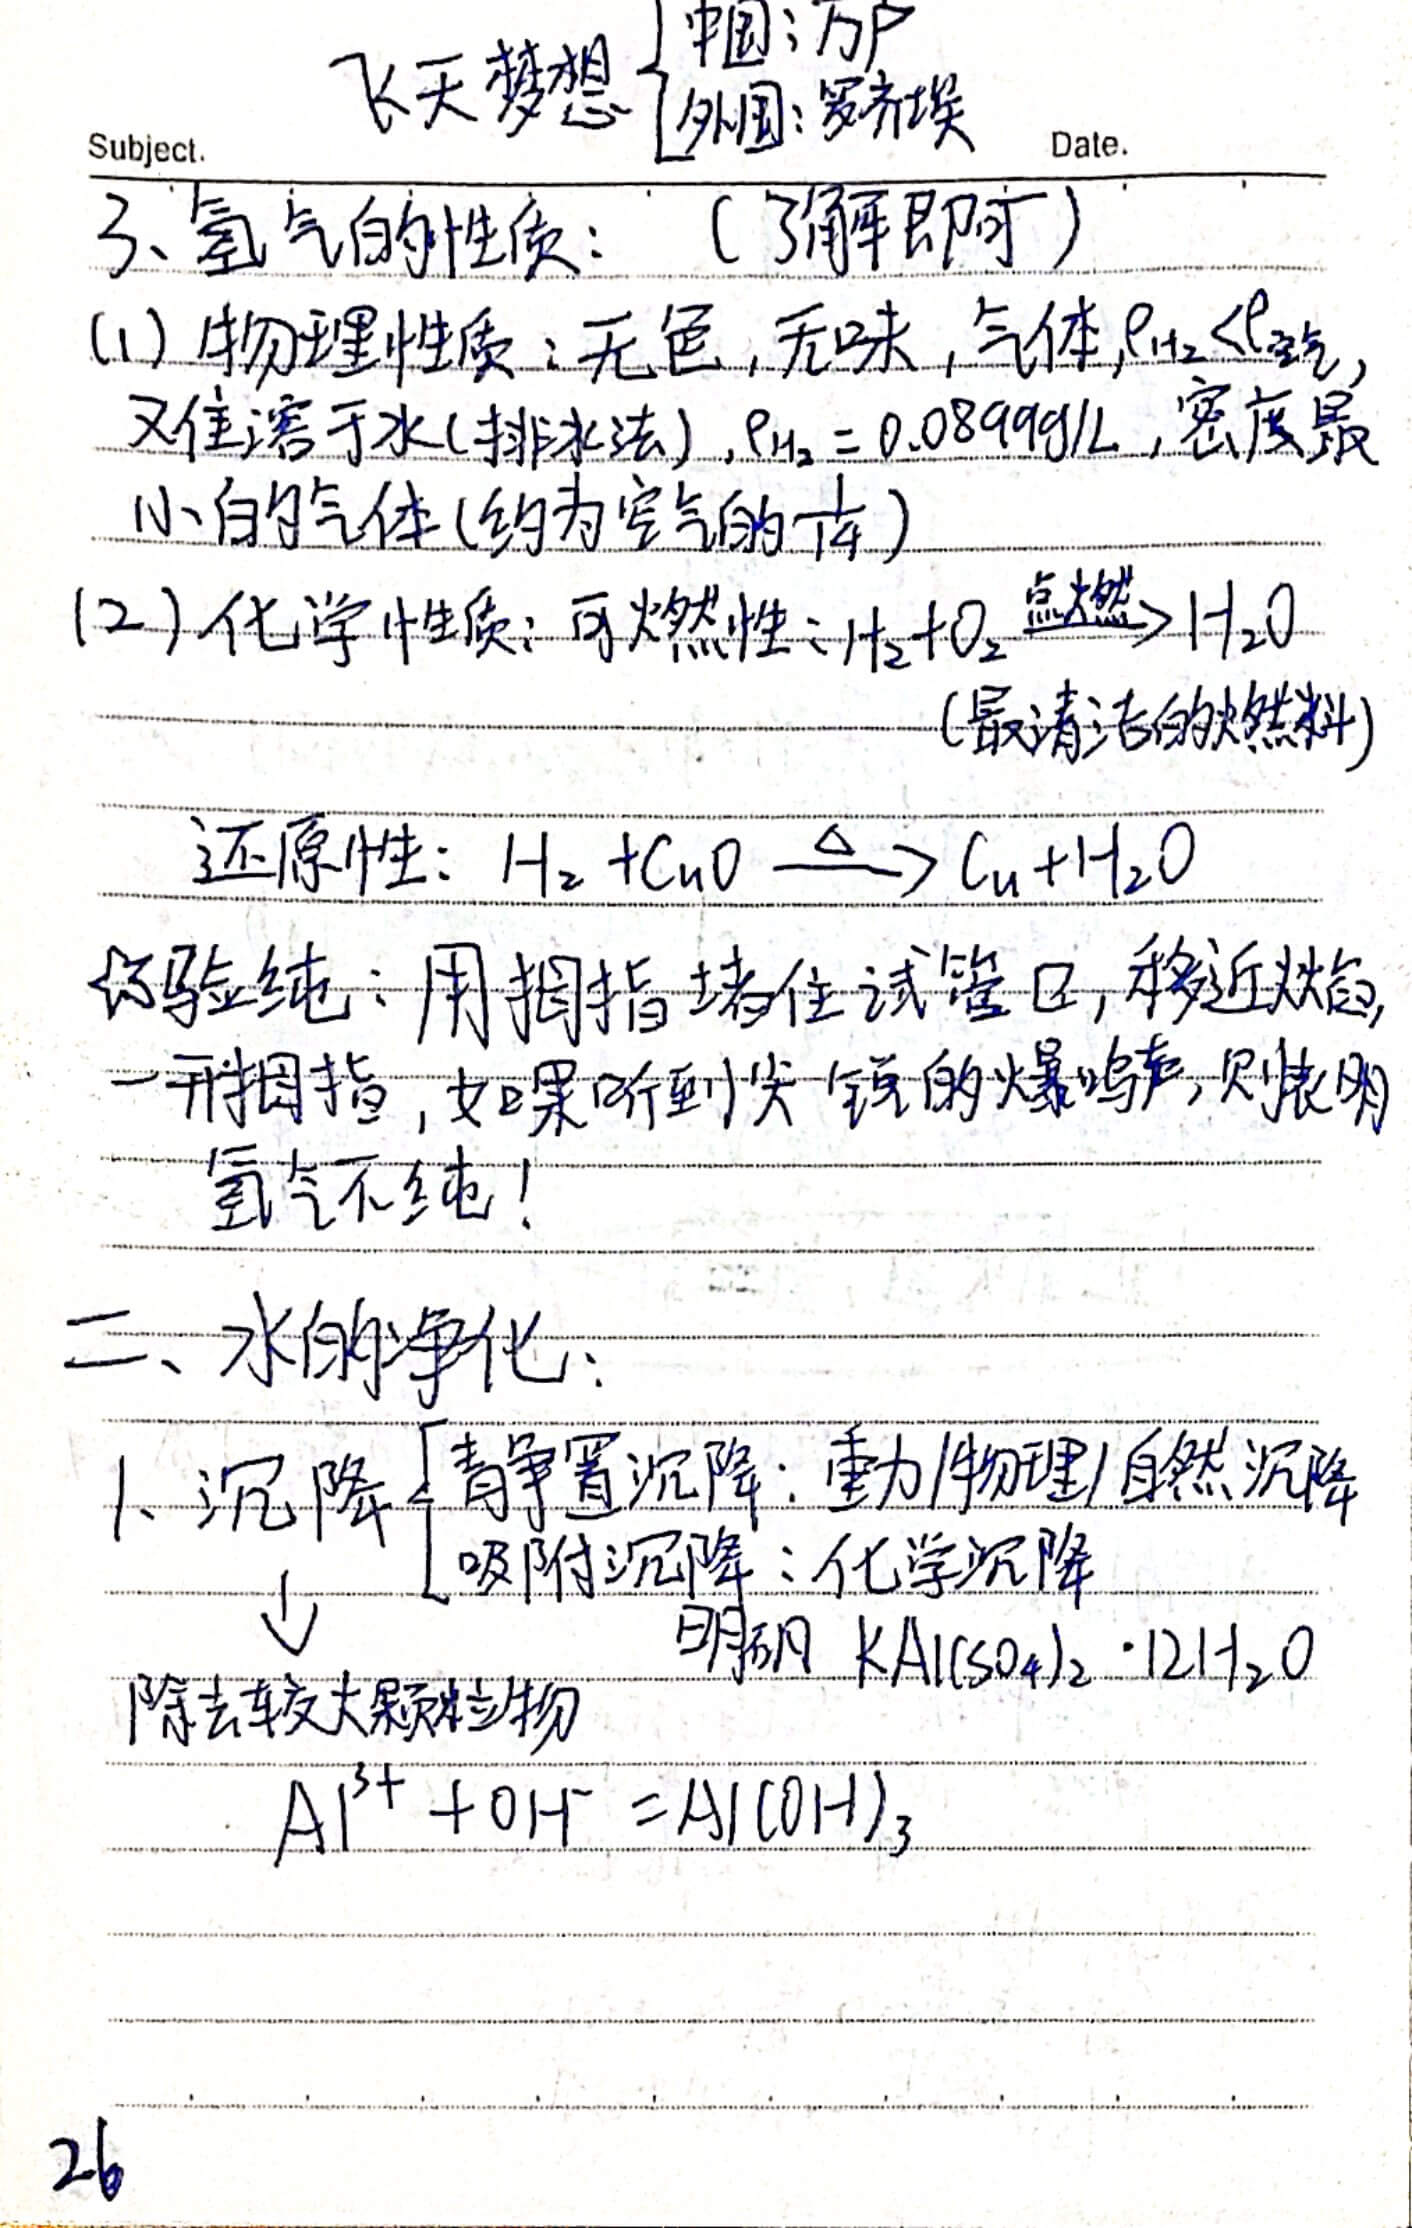 飞天梦想 { 中国:万户
外国:罗齐埃
Subject.
Date.
3、氢气的性质: (了解即可)
(1) 物理性质:无色,无味,气体,ρH₂<ρ空气,
又住溶于水(排水法),ρH₂=0.0899g/L,密度最
小的气体(约为空气的1/14)
(2) 化学性质:可燃性:H₂+O₂ 点燃→ H₂O
(最清洁的燃料)
还原性: H₂+CuO △→ Cu+H₂O
☆验纯:用拇指堵住试管口,移近火焰,
一开拇指,如果听到尖锐的爆鸣声,则表明
氢气不纯!
二、水的净化:
1、沉降 { 静置沉降:重力/物理/自然沉降
吸附沉降:化学沉降
↓
明矾 KAl(SO₄)₂·12H₂O
除去较大颗粒物
Al³⁺+OH⁻=Al(OH)₃
26